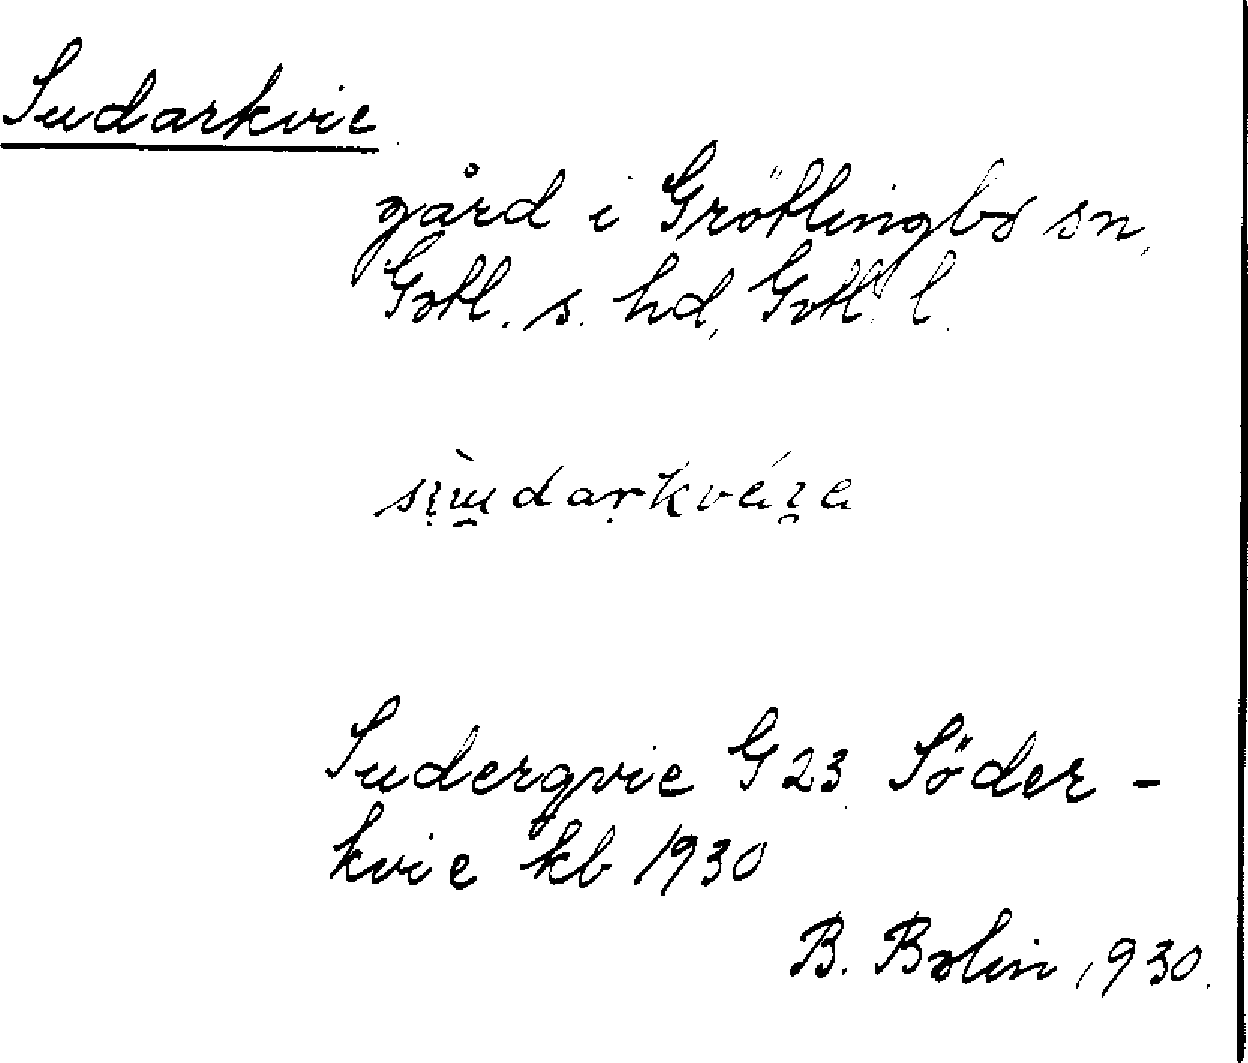 Sudarkvie
gård i Grötlingbo sn,
Gotl. s. hd, Gotl. l.
Suderqvie G 23 Söder-
kvie kb 1930
B. Bolin 1930.